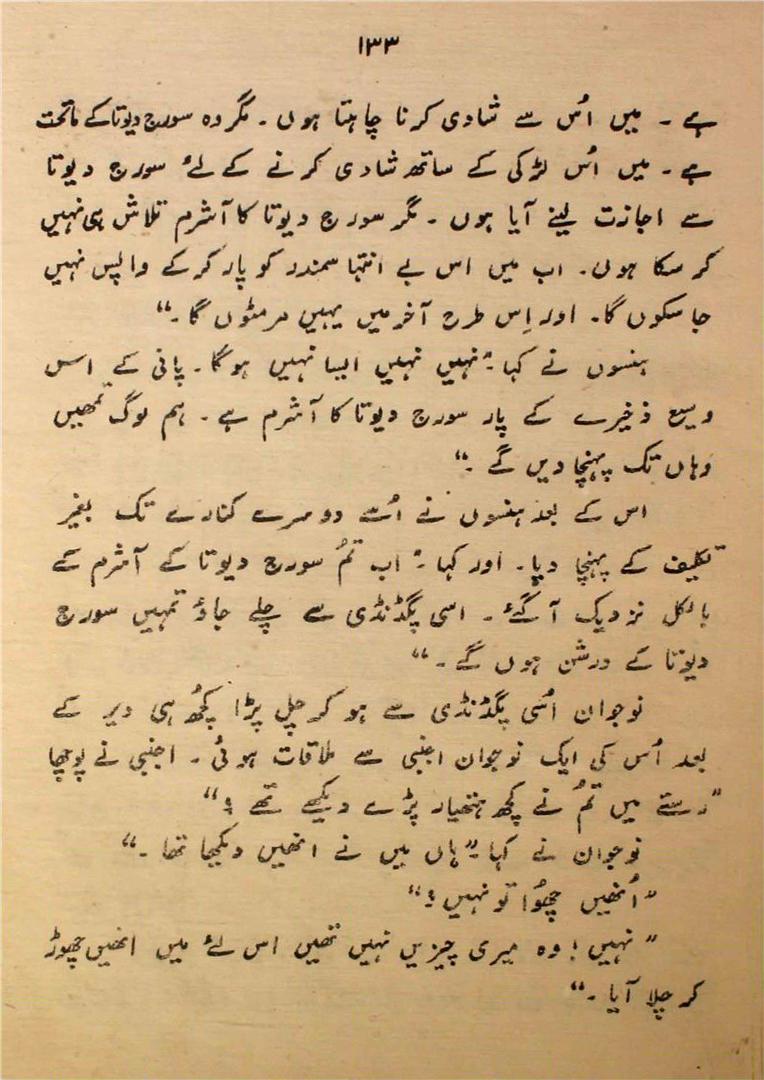 ۱۳۳
ہے ۔ میں اُس سے شادی کرنا چاہتا ہوں ۔ مگر وہ سورج دیوتا کے ماتحت
ہے ۔ میں اُس لڑکی کے ساتھ شادی کرنے کے لئے سورج دیوتا
سے اجازت لینے آیا ہوں ۔ مگر سورج دیوتا کا آشرم تلاش ہی نہیں
کر سکا ہوں ۔ اب میں اس بے انتہا سمندر کو پار کر کے واپس نہیں
جا سکوں گا ۔ اور اِس طرح آخر میں یہیں مر مٹوں گا ۔“
ہنسوں نے کہا ۔ ”نہیں نہیں ایسا نہیں ہو گا ۔ پانی کے اس
وسیع ذخیرے کے پار سورج دیوتا کا آشرم ہے ۔ ہم لوگ تمھیں
وہاں تک پہنچا دیں گے ۔“
اس کے بعد ہنسوں نے اُسے دوسرے کنارے تک بغیر
تکلیف کے پہنچا دیا ۔ اور کہا ۔ ”اب تُم سورج دیوتا کے آشرم کے
بالکل نزدیک آ گئے ۔ اسی پگڈنڈی سے چلے جاؤ تمہیں سورج
دیوتا کے درشن ہوں گے ۔“
نوجوان اُسی پگڈنڈی سے ہو کر چل پڑا کچُھ ہی دیر کے
بعد اُس کی ایک نوجوان اجنبی سے ملاقات ہوئی ۔ اجنبی نے پوچھا
”رستے میں تُم نے کچھ ہتھیار پڑے دیکھے تھے ؟“
نوجوان نے کہا ۔ ”ہاں میں نے انھیں دیکھا تھا ۔“
”اُنھیں چھُوا تو نہیں ؟“
”نہیں ! وہ میری چیزیں نہیں تھیں اس لئے میں انھیں چھوڑ
کر چلا آیا ۔“